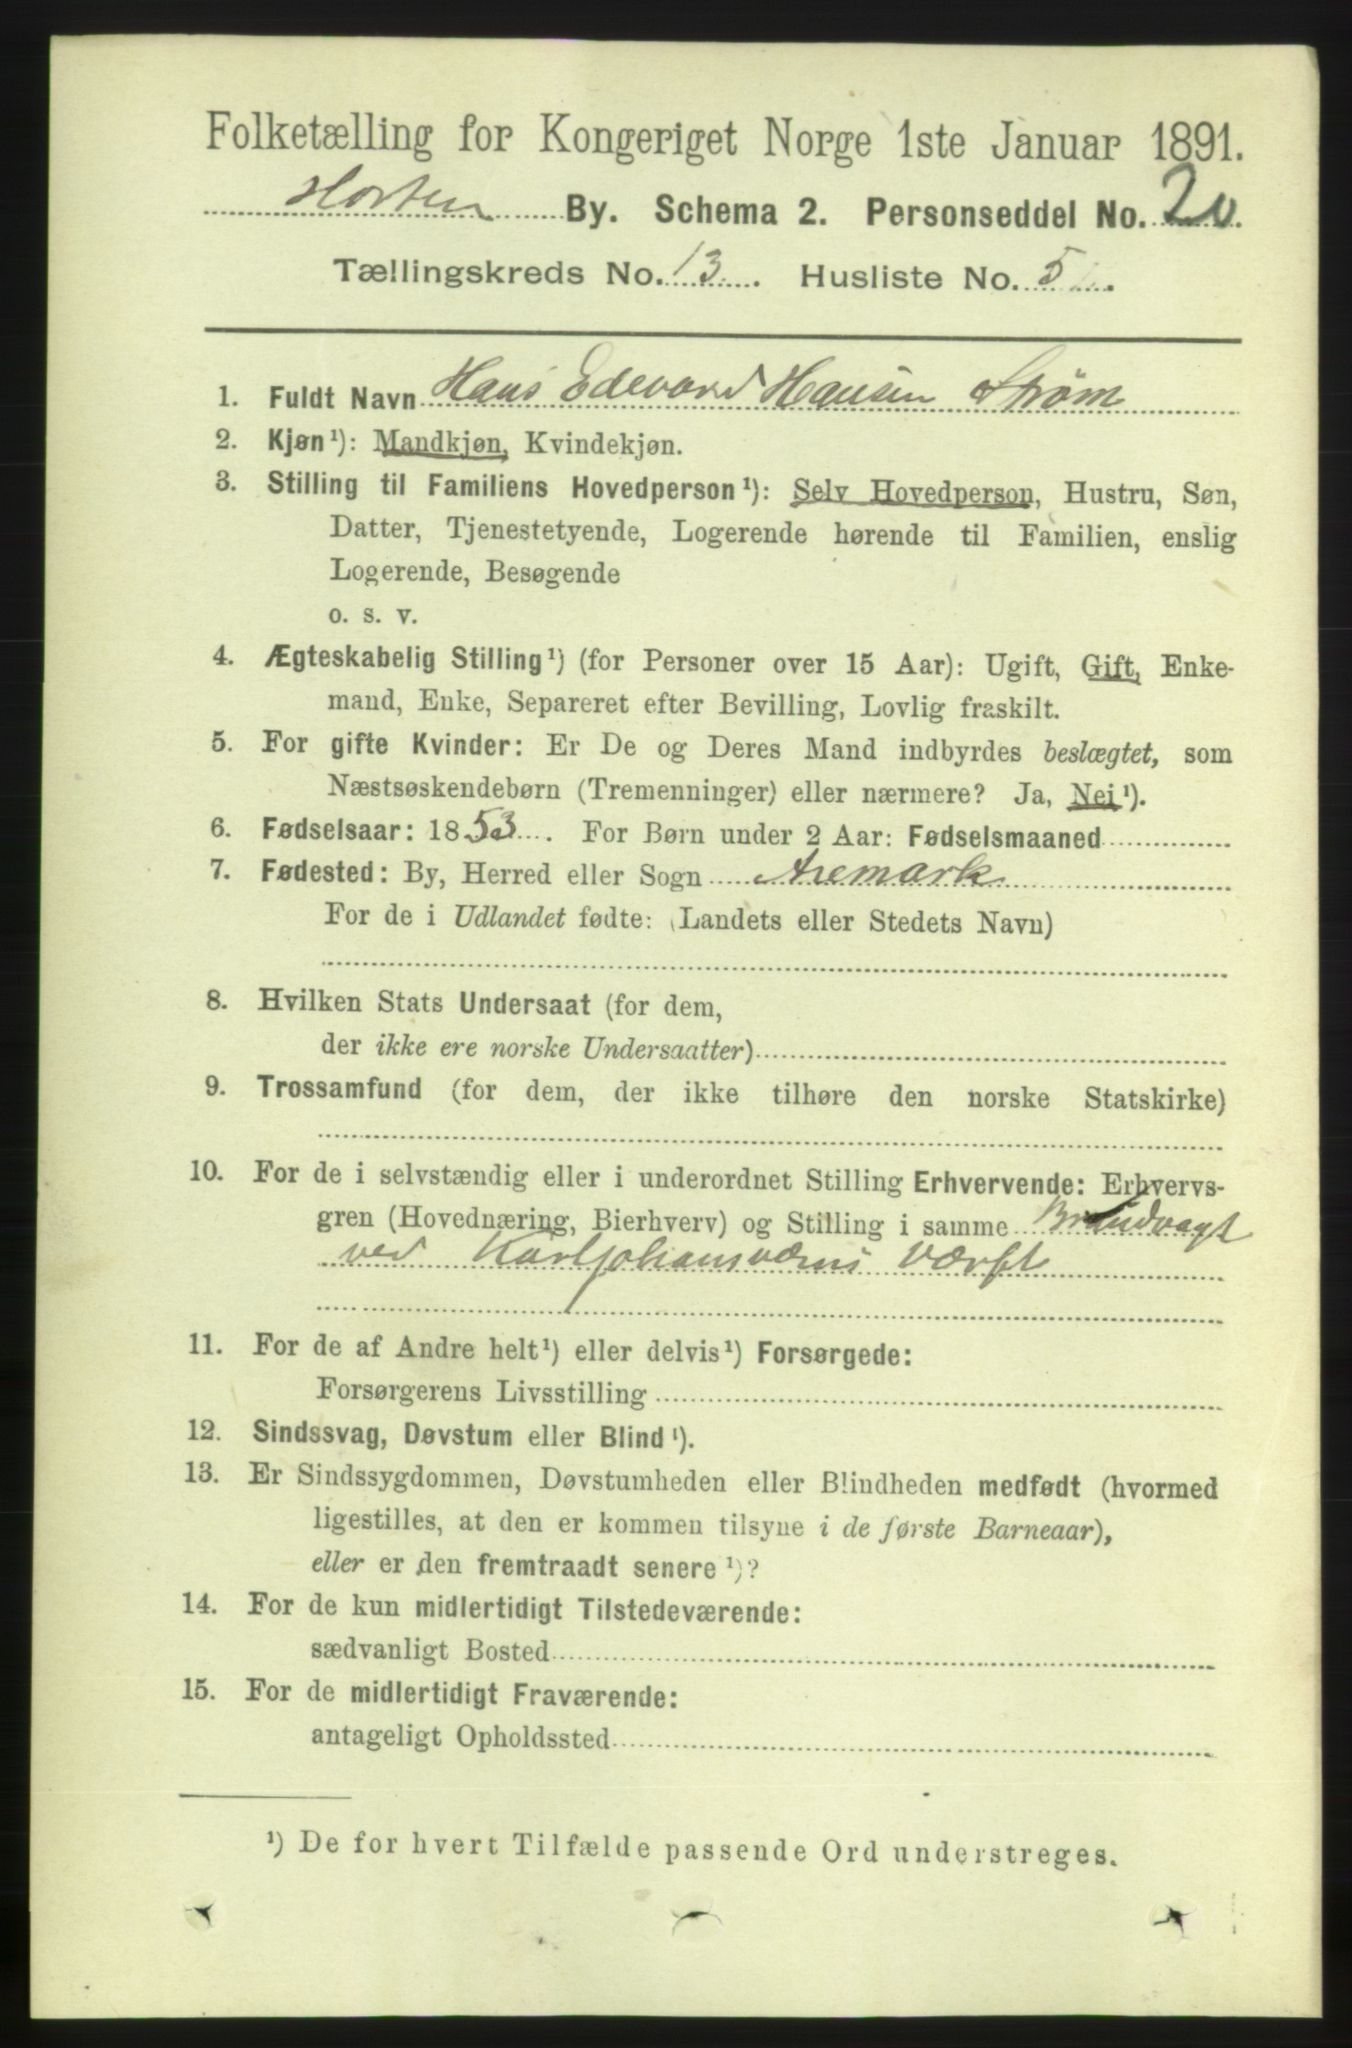 Folketælling for Kongeriget Norge 1ste Januar 1891.
Horten By. Schema 2. Personseddel No. 20.
Tællingskreds No. 13. Husliste No. 5.
1. Fuldt Navn Hans Edevard Hansen Strøm
2. Kjøn¹): Mandkjøn, Kvindekjøn.
3. Stilling til Familiens Hovedperson¹): Selv Hovedperson, Hustru, Søn,
Datter, Tjenestetyende, Logerende hørende til Familien, enslig
Logerende, Besøgende
o. s. v.
4. Ægteskabelig Stilling¹) (for Personer over 15 Aar): Ugift, Gift, Enke-
mand, Enke, Separeret efter Bevilling, Lovlig fraskilt.
5. For gifte Kvinder: Er De og Deres Mand indbyrdes beslægtet, som
Næstsøskendebørn (Tremenninger) eller nærmere? Ja, Nei¹).
6. Fødselsaar: 1853. For Børn under 2 Aar: Fødselsmaaned
7. Fødested: By, Herred eller Sogn Aremark
For de i Udlandet fødte: (Landets eller Stedets Navn)
8. Hvilken Stats Undersaat (for dem,
der ikke ere norske Undersaatter)
9. Trossamfund (for dem, der ikke tilhøre den norske Statskirke)
10. For de i selvstændig eller i underordnet Stilling Erhvervende: Erhvervs-
gren (Hovednæring, Bierhverv) og Stilling i samme Brandvagt
ved Karljohansværns Værft
11. For de af Andre helt¹) eller delvis¹) Forsørgede:
Forsørgerens Livsstilling
12. Sindssvag, Døvstum eller Blind¹).
13. Er Sindssygdommen, Døvstumheden eller Blindheden medfødt (hvormed
ligestilles, at den er kommen tilsyne i de første Barneaar),
eller er den fremtraadt senere¹)?
14. For de kun midlertidigt Tilstedeværende:
sædvanligt Bosted
15. For de midlertidigt Fraværende:
antageligt Opholdssted
¹) De for hvert Tilfælde passende Ord understreges.